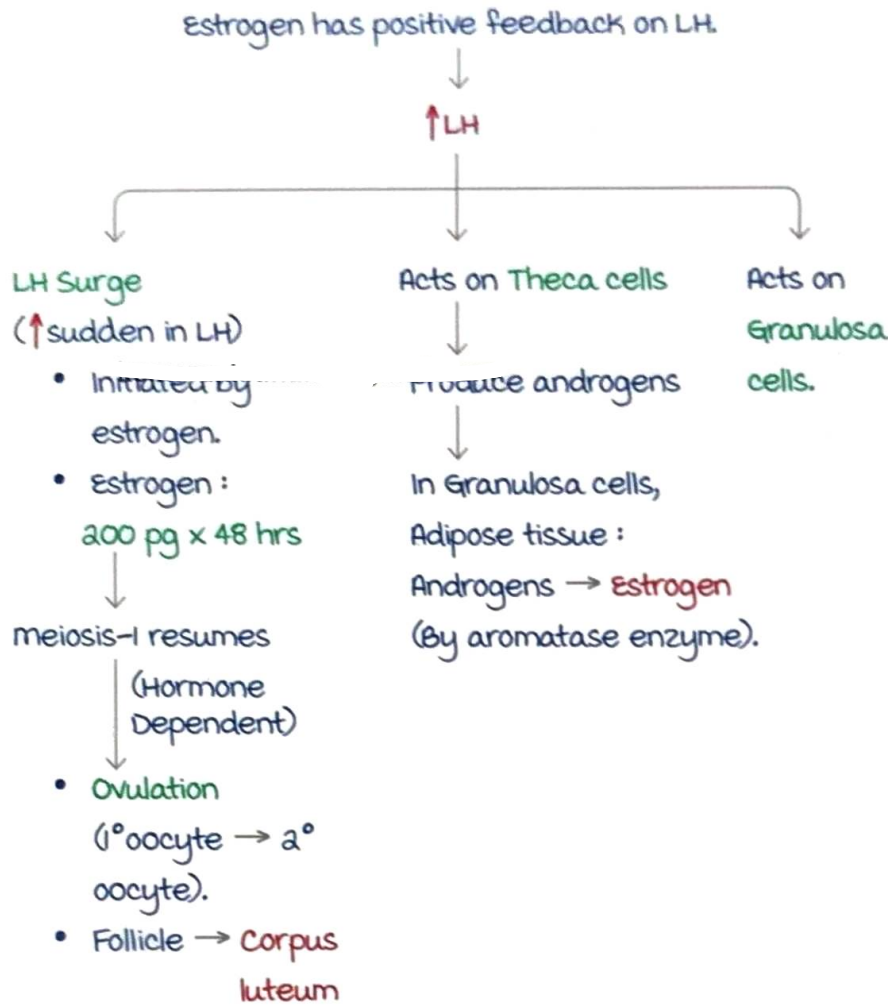 Estrogen has positive feedback on LH.
↑LH
LH Surge
(↑sudden in LH)
• Initiated by
estrogen.
• Estrogen :
200 pg x 48 hrs
meiosis-I resumes
(Hormone
Dependent)
• Ovulation
(1°oocyte → 2°
oocyte).
• Follicle → Corpus
luteum
Acts on Theca cells
Produce androgens
In Granulosa cells,
Adipose tissue :
Androgens → Estrogen
(By aromatase enzyme).
Acts on
Granulosa
cells.